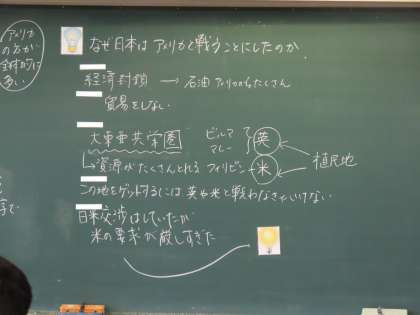 アメリカの方が全体的に多い
なぜ日本はアメリカと戦うことにしたのか
経済封鎖 → 石油 アメリカからたくさん
貿易をしない
大東亜共栄圏
ビルマ
マレー
英
植民地
↳資源がたくさんとれる フィリピン - 米
この地をゲットするには英や米と戦わなきゃいけない
日米交渉はしていたが
米の要求が厳しすぎた